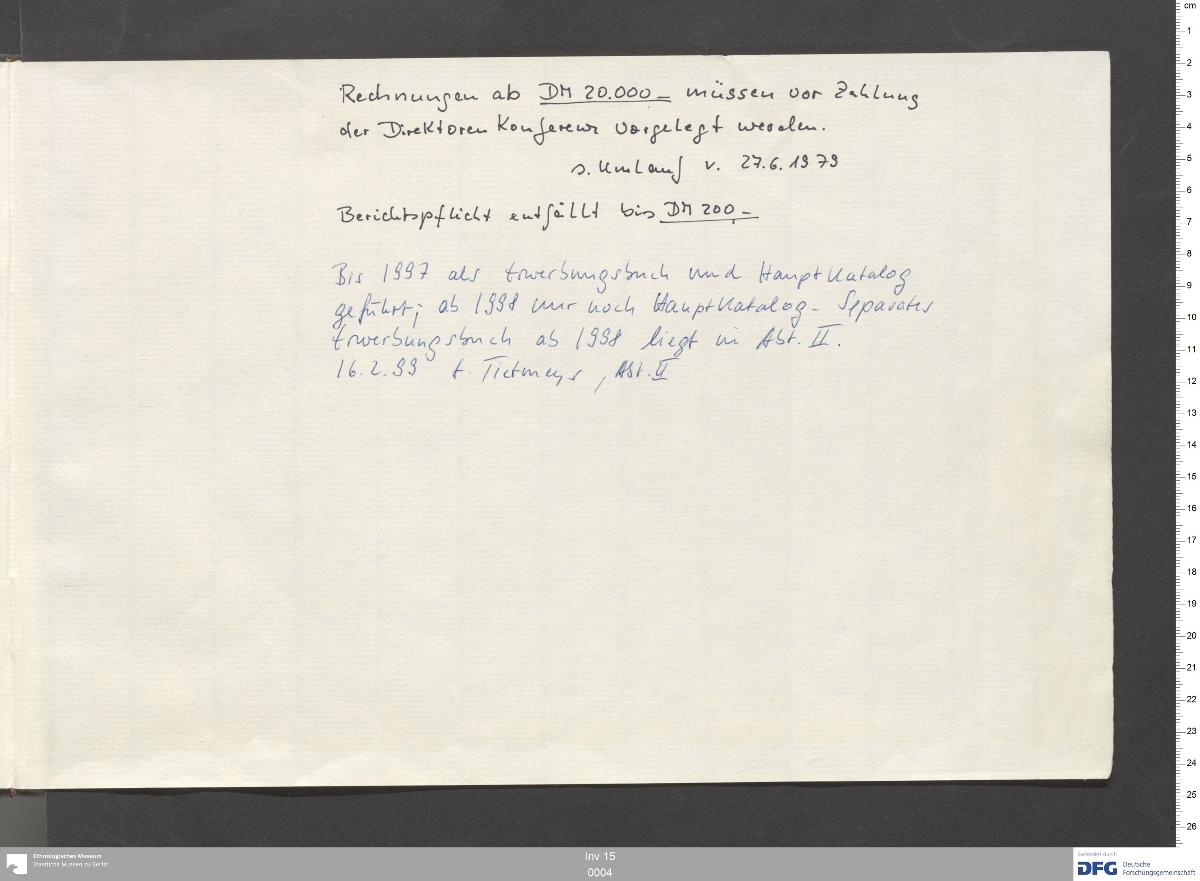 Rechnungen ab DM 20.000,– müssen vor Zahlung
der Direktoren Konferenz vorgelegt werden.
s. Umlauf v. 27.6.1979
Berichtspflicht entfällt bis DM 200,–
Bis 1997 als Erwerbungsbuch und Hauptkatalog
geführt; ab 1998 nur noch Hauptkatalog. Separates
Erwerbungsbuch ab 1998 liegt in Abt. II.
16.2.99 E. Tietmeyer, Abt. II
cm
1
2
3
4
5
6
7
8
9
10
11
12
13
14
15
16
17
18
19
20
21
22
23
24
25
26
Ethnologisches Museum
Staatliche Museen zu Berlin
Inv 15
0004
Gefördert durch
DFG Deutsche
Forschungsgemeinschaft